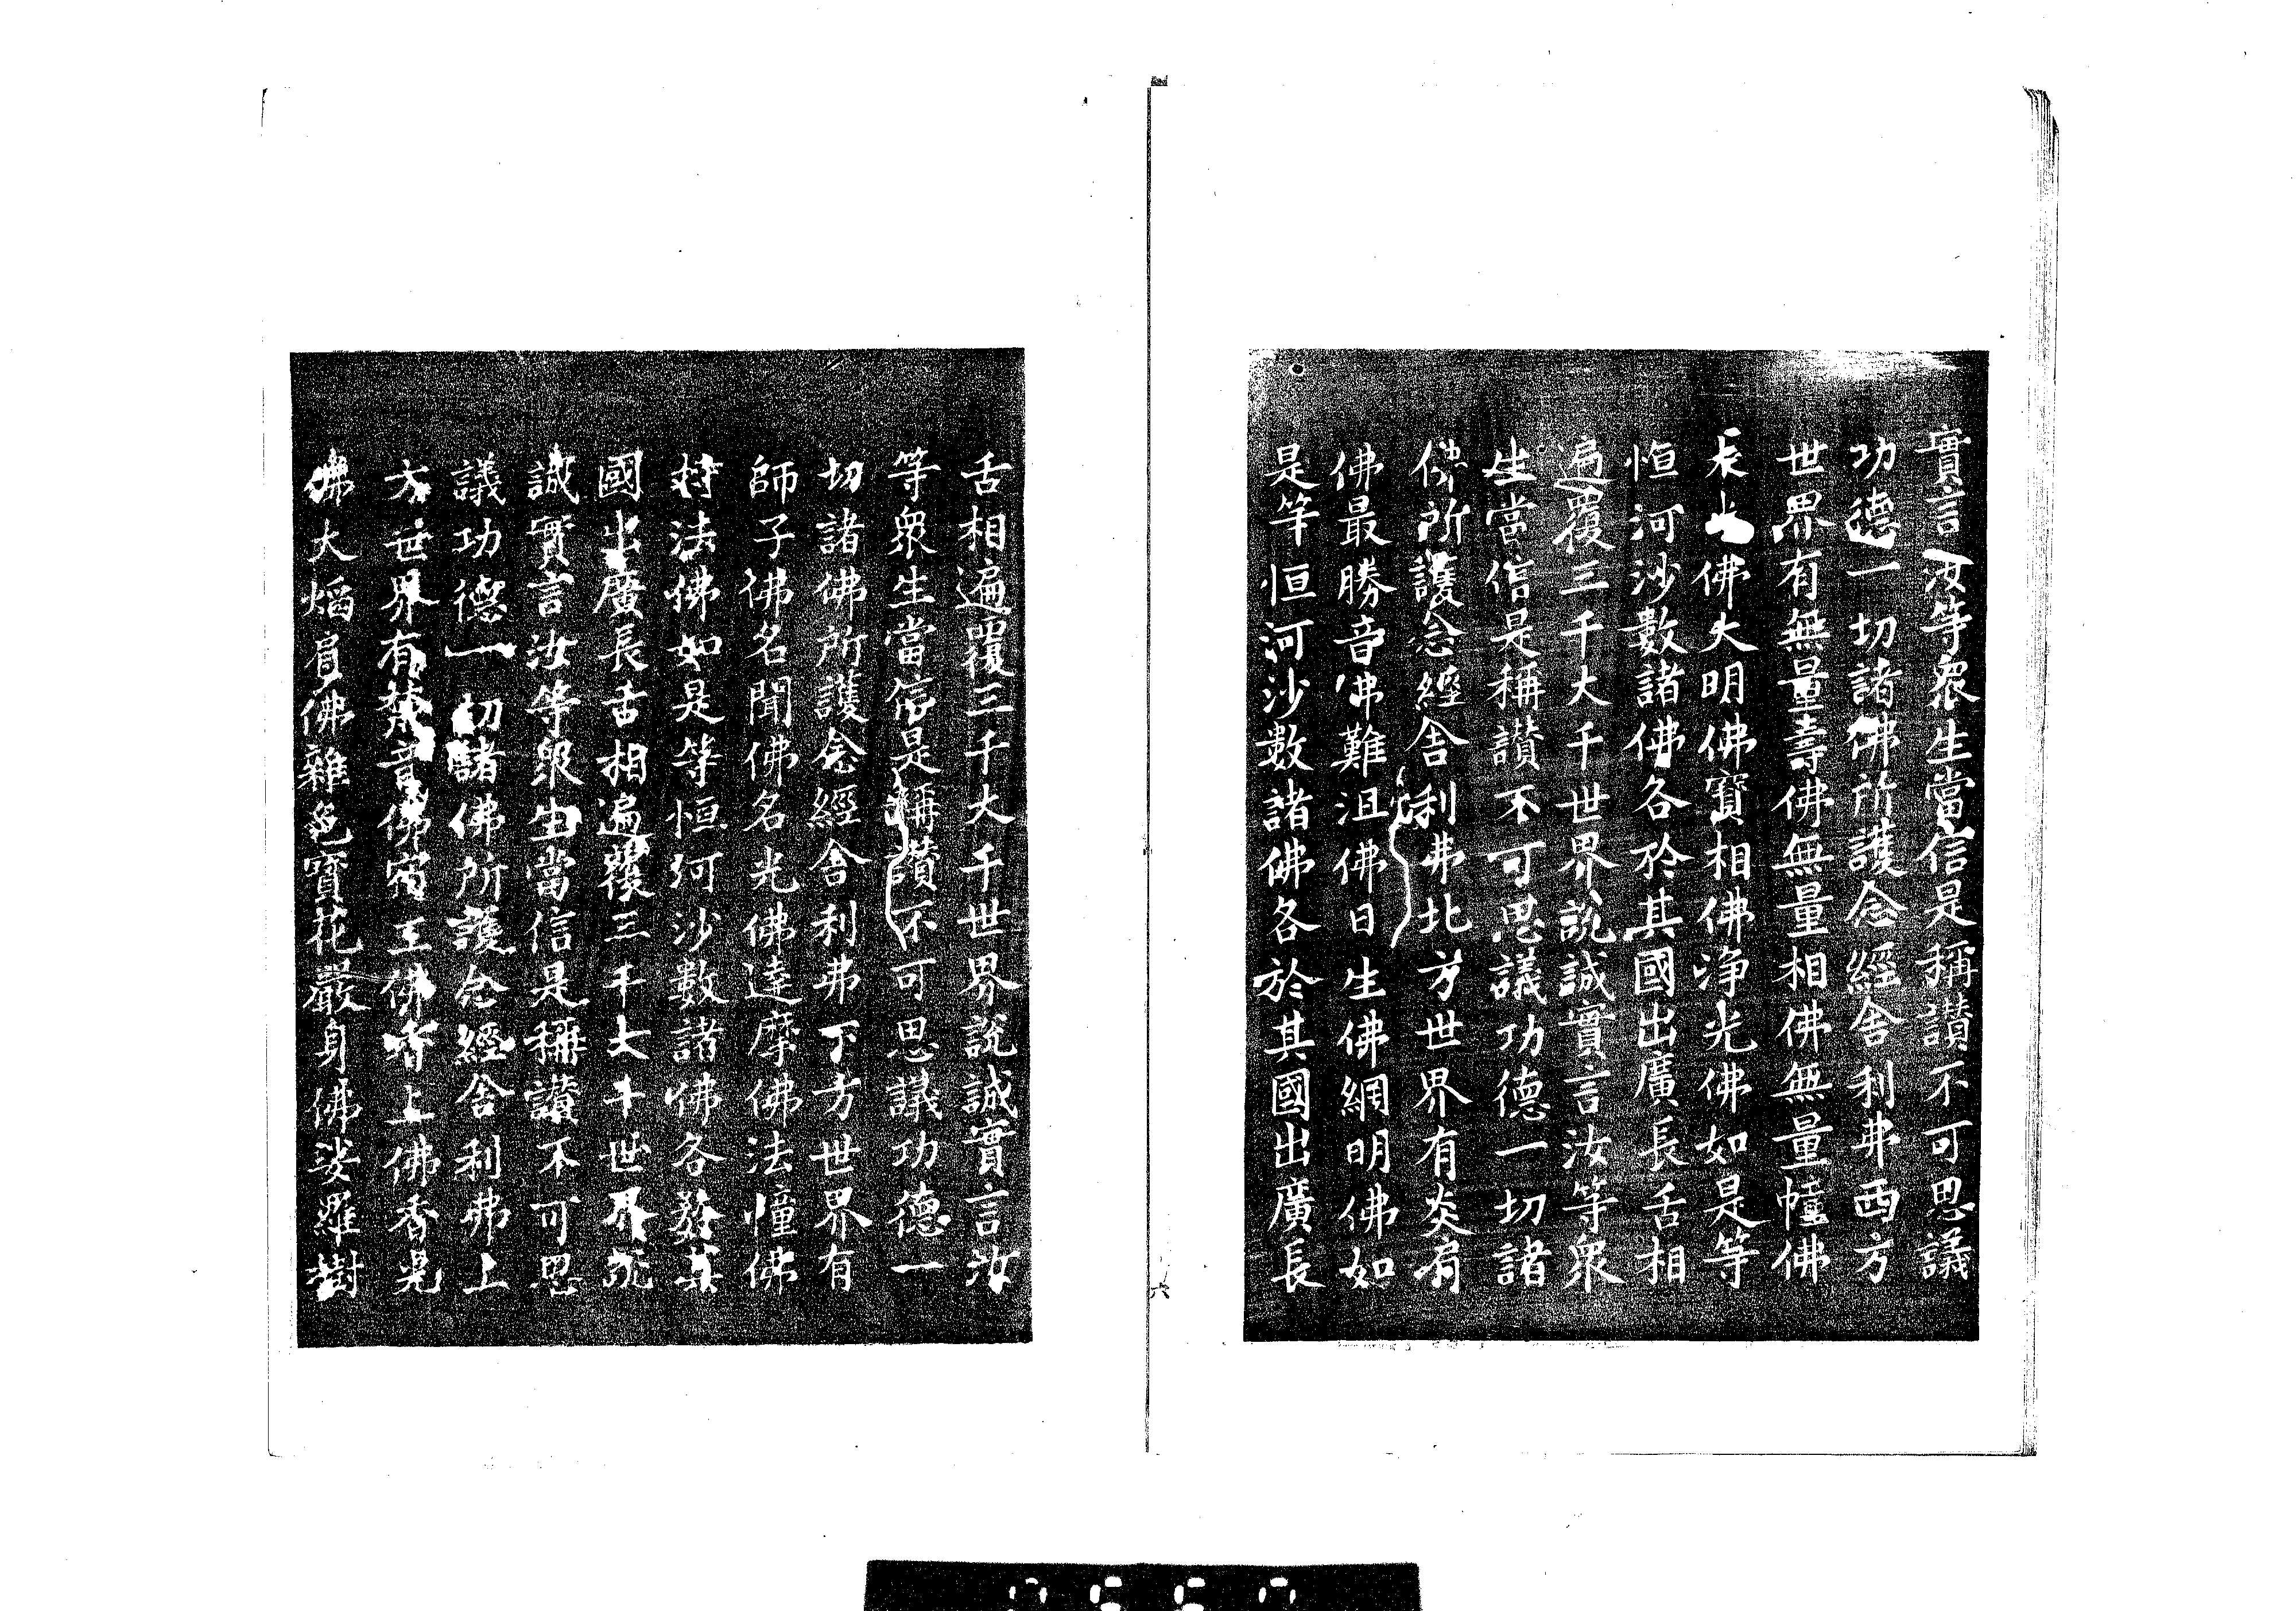 實言汝等眾生當信是稱讚不可思議
功德一切諸佛所護念經舍利弗西方
世界有無量壽佛無量相佛無量幢佛
大光佛大明佛寶相佛淨光佛如是等
恒河沙數諸佛各於其國出廣長舌相
遍覆三千大千世界說誠實言汝等眾
生當信是稱讚不可思議功德一切諸
佛所護念經舍利弗北方世界有炎肩
佛最勝音佛難沮佛日生佛網明佛如
是等恒河沙數諸佛各於其國出廣長
舌相遍覆三千大千世界說誠實言汝
等眾生當信是稱讚不可思議功德一
切諸佛所護念經舍利弗下方世界有
師子佛名聞佛名光佛達摩佛法幢佛
持法佛如是等恒河沙數諸佛各於其
國出廣長舌相遍覆三千大千世界說
誠實言汝等眾生當信是稱讚不可思
議功德一切諸佛所護念經舍利弗上
方世界有梵音佛宿王佛香上佛香光
佛大焰肩佛雜色寶花嚴身佛娑羅樹
六